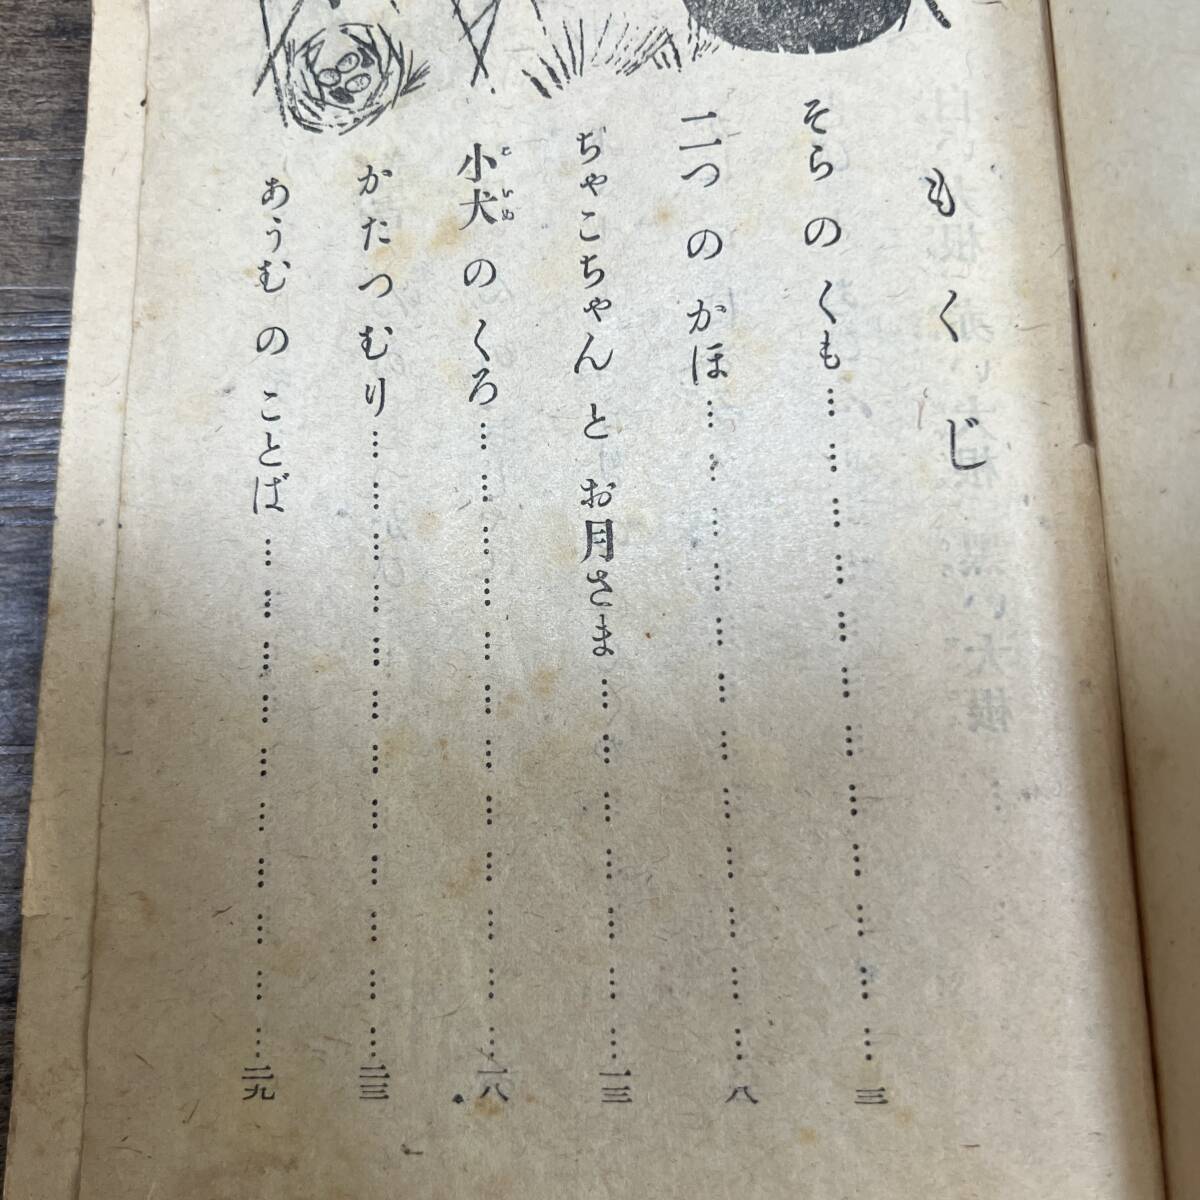 もくじ
そら の くも…………………………………三
二つ の かほ…………………………………八
ちゃこちゃん と お月さま………………………一三
小犬 の くろ…………………………………一八
こいぬ
かたつむり…………………………………二三
あうむ の ことば……………………………二九